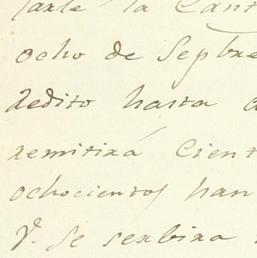 la Cant
ocho de Sepbre
Redito hasta
remitirá Cient
ochocientos han
V. se serbira